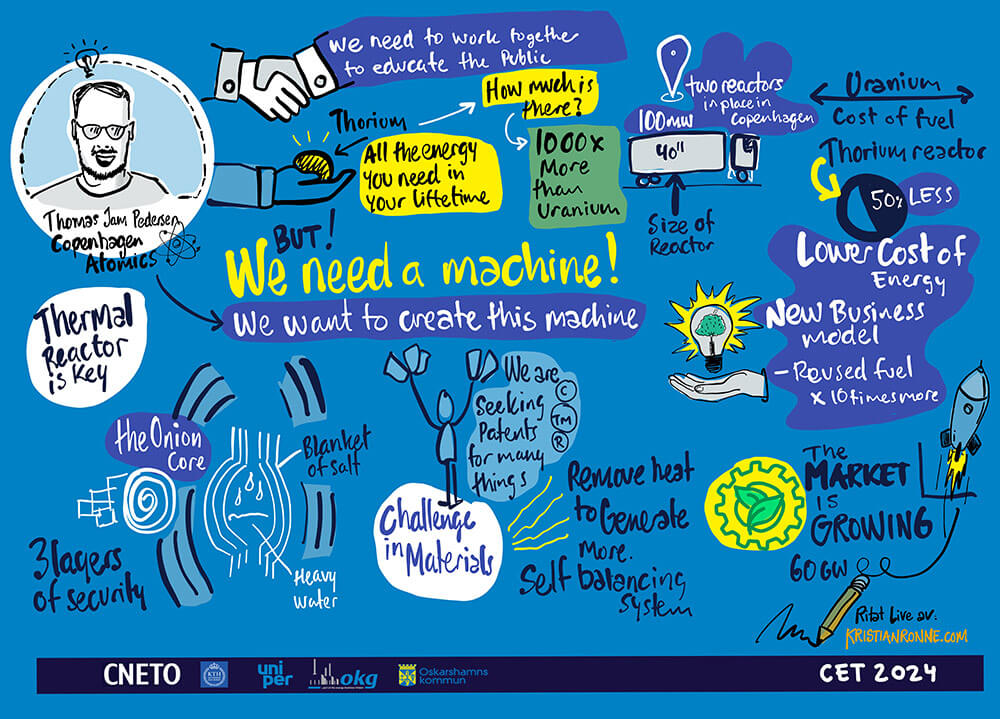 We need to work together
to educate the Public
Thorium
How much is
there?
All the energy
You need in
Your Lifetime
1000x
More
than
Uranium
two reactors
in place in
Copenhagen
100MW
40"
Size of
Reactor
Uranium
Cost of fuel
Thorium reactor
50% LESS
Thomas Jam Pedersen
Copenhagen
Atomics
BUT!
We need a machine!
We want to create this machine
Lower Cost of
Energy
New Business
model
- Reused fuel
x 10 times more
Thermal
Reactor
is Key
the Onion
Core
Blanket
of Salt
Heavy
Water
3 layers
of security
We are
Seeking
Patents
for many
things
C
TM
R
Challenge
in Materials
Remove heat
to Generate
More.
Self balancing
system
The
MARKET
is
GROWING
60 GW
Ritat Live av:
KRISTIANRONNE.COM
CNETO
KTH
uni
per
okg
Oskarshamns
kommun
CET 2024